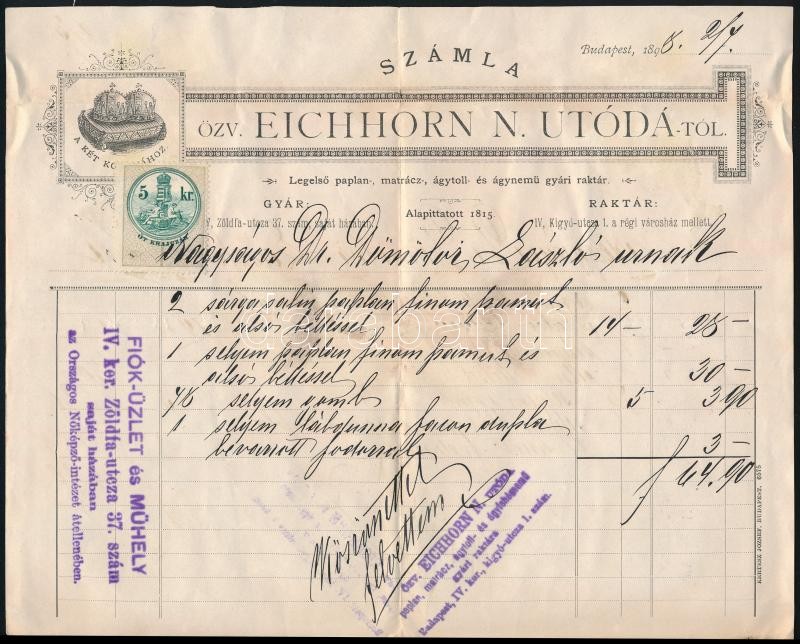 Budapest, 1898. 2/7
SZÁMLA
ÖZV. EICHHORN N. UTÓDÁ-TÓL.
A KÉT KO HOZ.
Legelső paplan-, matrácz-, ágytoll- és ágynemű gyári raktár.
GYÁR:
RAKTÁR:
Zöldfa-utcza 37. szám, saját házában.
Alapittatott 1815.
IV, Kigyó-utcza 1. a régi városház mellett.
5 kr.
ÖT KRAJCZÁR
Nagyságos Dr. Dömötör László urnak
2 sárga satin paplan finom pamut
és alsó béléssel 14— 28—
1 selyem paplan finom pamut és
alsó béléssel 30—
78 selyem gomb 5 3.90
1 selyem lábdunna facon dupla
bevarrott fodorral 3—
f 64.90
Köszönettel
felvettem
ÖZV. EICHHORN N. UTÓDA
paplan, matrácz, ágytoll- és ágyfehérnemű
gyári raktára
Budapest, IV. ker., kigyó-utcza 1. szám.
FIÓK-ÜZLET és MŰHELY
IV. ker. Zöldfa-utcza 37. szám
saját házában
az Országos Nőképző-intézet átellenében.
KERTÉSZ JÓZSEF, BUDAPEST. 6575
darabanth